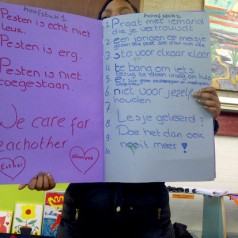 hoofstuk 1
Pesten is echt niet
leus.
Pesten is erg.
Pesten is niet
toegestaan.
We care for
eachother
Esther
hoofdstuk 2
1 Praat met iemand
die je vertrouwt
2 een jongen of meisje
3 sta voor elkaar klaar
4
te bang om iets
5
6 niet voor jezelf
houden
7
8 Lesje geleerd?
9 Doe het dan ook
nooit meer!